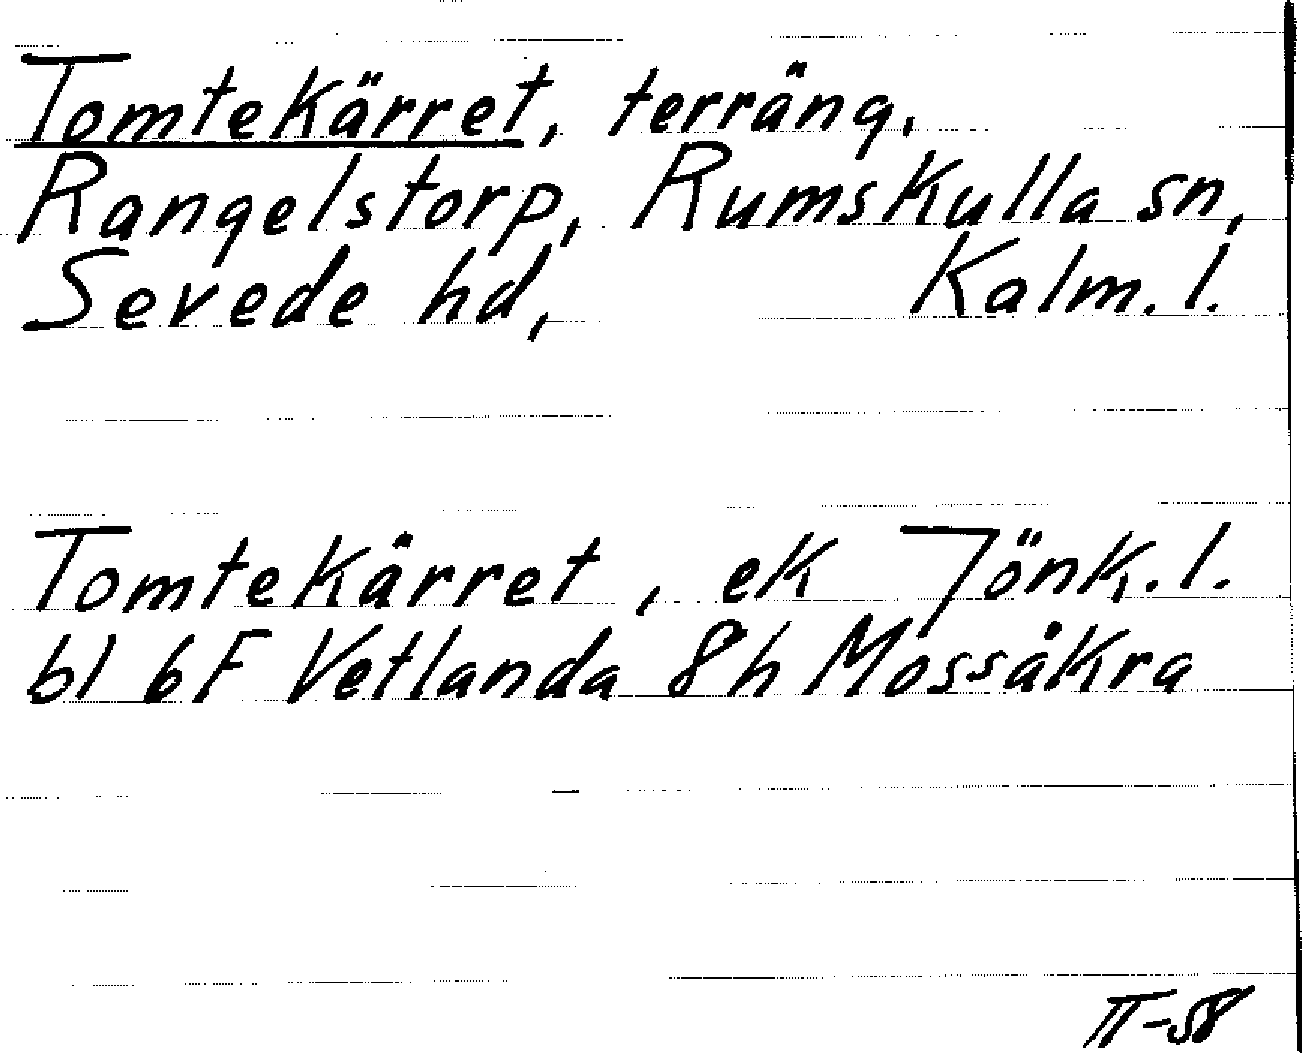 Tomtekärret, terräng.
Rangelstorp, Rumskulla sn,
Sevede hd, Kalm. l.
Tomtekärret, ek Jönk. l.
bl 6F Vetlanda 8h Mossåkra
II-58